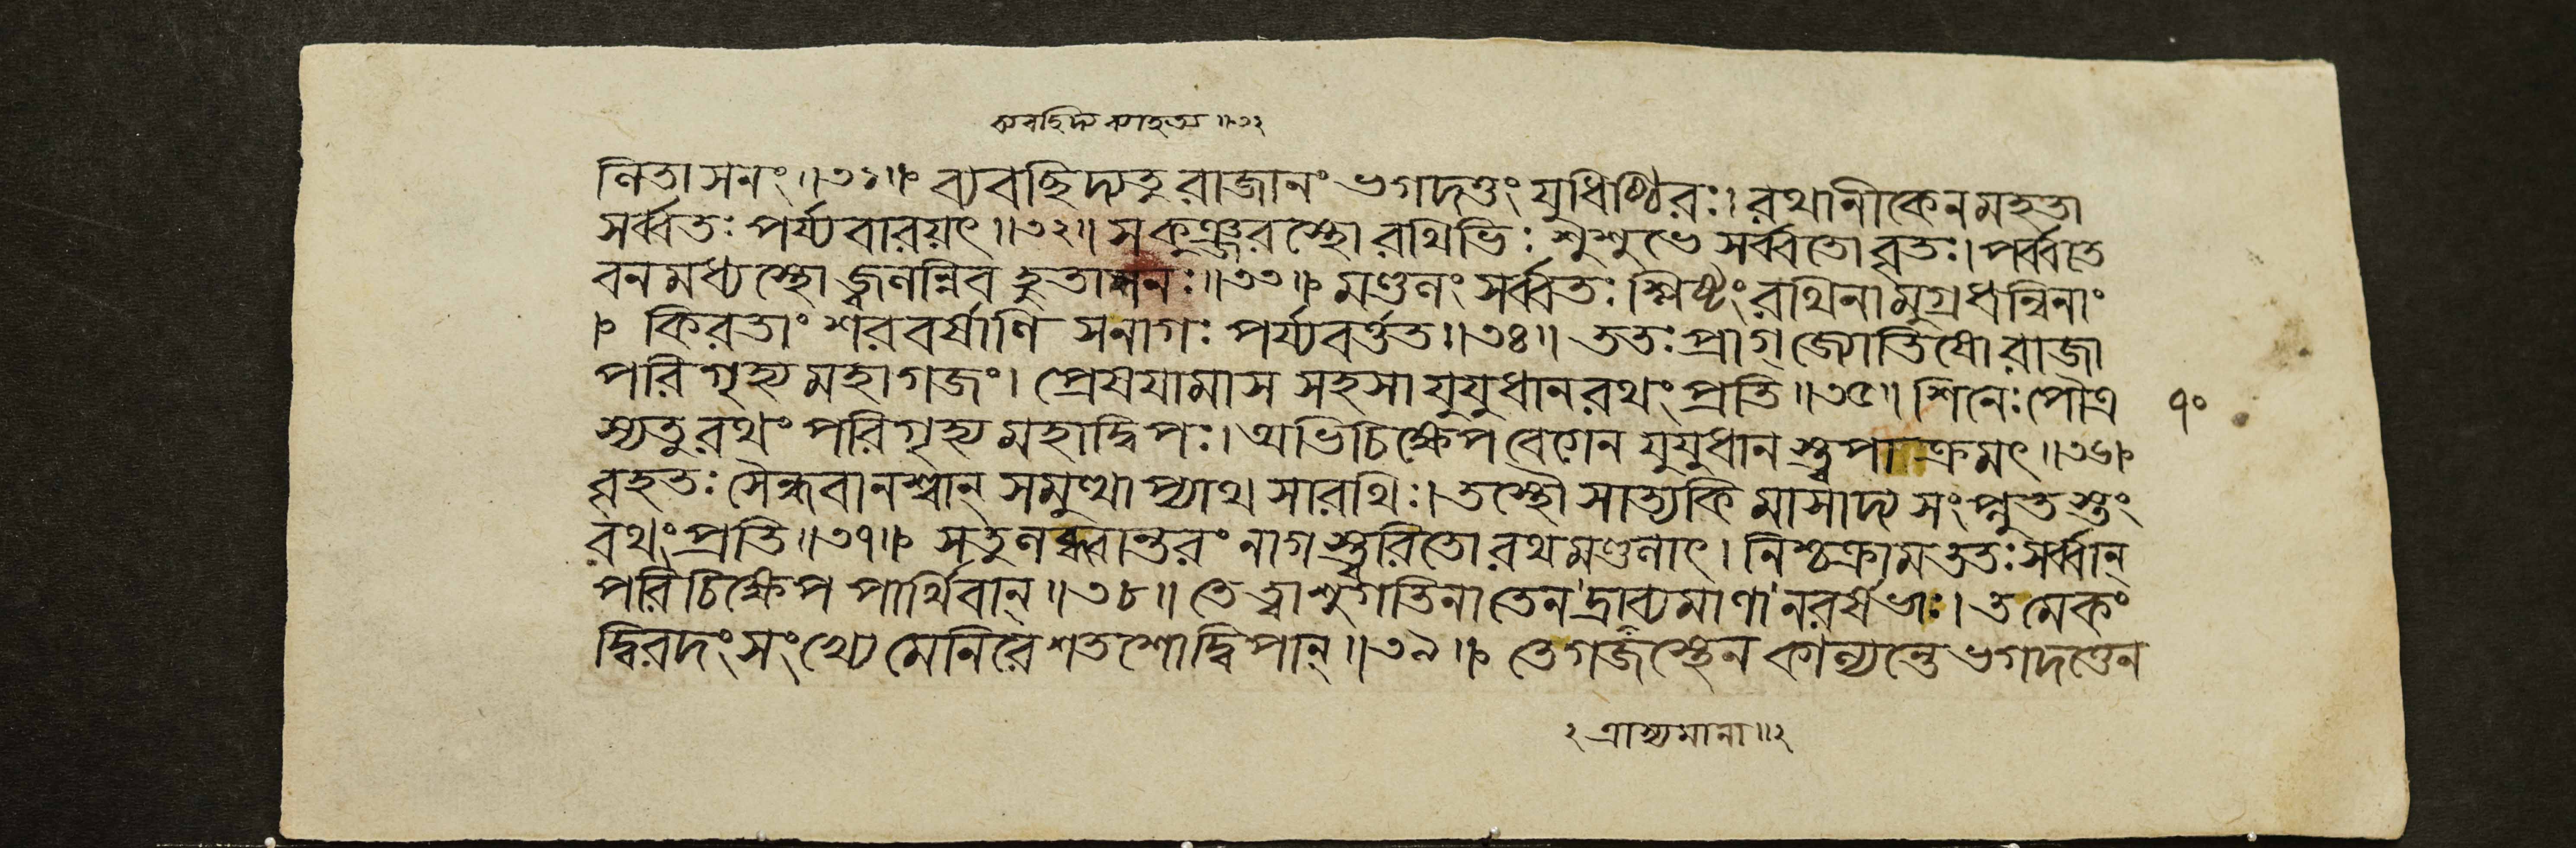 ব্যবছিদ্য ব্যূহতয় ॥ ৩২
লিতাসনং ॥ ৩১ ॥ ব্যবছিদ্যতু রাজানং ভগদত্তং যুধিষ্ঠিরঃ। রথানীকেন মহতা
সর্ব্বতঃ পর্য্যবারয়ৎ ॥ ৩২ ॥ স কুঞ্জরস্থো রথিভিঃ শুশুভে সর্ব্বতো বৃতঃ। পর্ব্বতে
বনমধ্যস্থো জ্বলন্নিব হুতাশনঃ ॥ ৩৩ ॥ মণ্ডলং সর্ব্বতঃ শ্লিষ্টং রথিনামুগ্রধন্বিনাং
। কিরতাং শরবর্ষাণি সনাগঃ পর্য্যবর্ত্তত ॥ ৩৪ ॥ ততঃ প্রাগ্জ্যোতিষো রাজা
পরিগৃহ্য মহাগজং। প্রেষযামাস সহসা যুযুধানরথং প্রতি ॥ ৩৫ ॥ শিনেঃ পৌত্র
স্যতু রথং পরিগৃহ্য মহাদ্বিপঃ। অভিচিক্ষেপ বেগেন যুযুধানস্ত্বপাক্রমৎ ॥ ৩৬ ॥
৭০
বৃহতঃ সৈন্ধবানশ্বান্ সমুত্থাপ্যাথ সারথিঃ। তস্থৌ সাত্যকিমাসাদ্য সংপ্লুতস্তং
রথং প্রতি ॥ ৩৭ ॥ সতু লব্ধ্বান্তরং নাগস্ত্বরিতো রথমণ্ডলাৎ। নিশ্চক্রাম ততঃ সর্ব্বান্
পরিচিক্ষেপ পার্থিবান্ ॥ ৩৮ ॥ তে ত্বাশুগতিনা তেন দ্রাব্যমাণা নরর্ষভাঃ। তমেকং
দ্বিরদং সংখ্যে মেনিরে শতশো দ্বিপান্ ॥ ৩৯ ॥ তে গজস্থেন কাল্যন্তে ভগদত্তেন
২ ত্রাস্যমানা ॥ ২